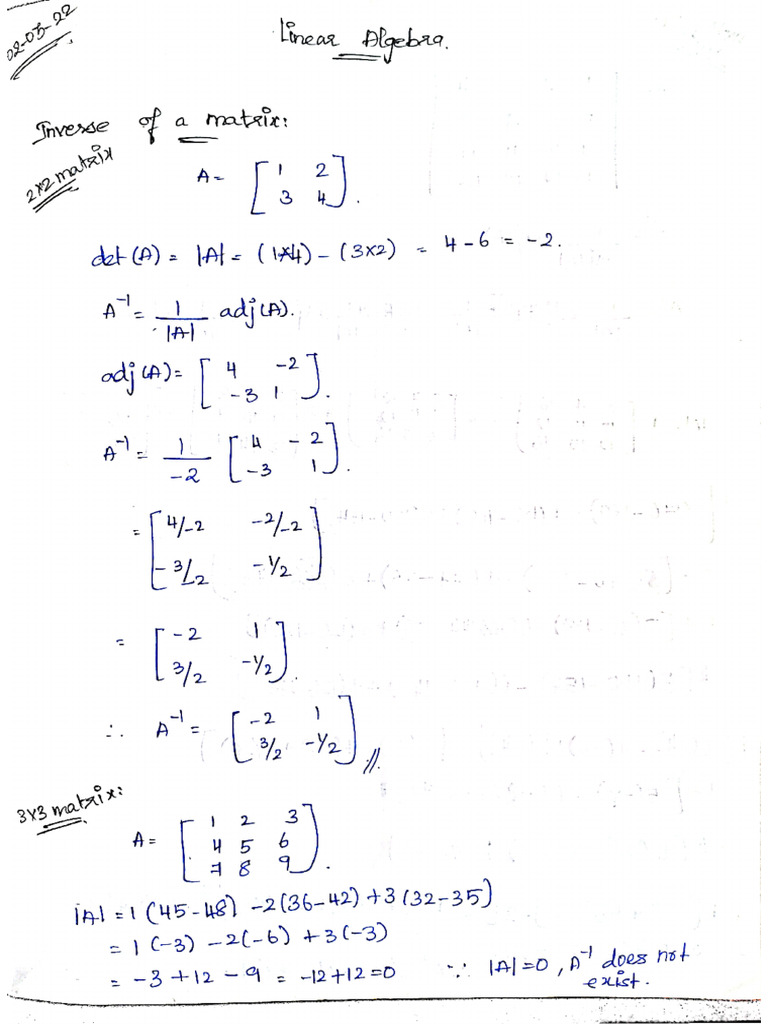 02-05-22
Linear Algebra.
Inverse of a matrix:
2×2 matrix
A = [ 1 2
3 4 ].
det(A) = |A| = (1×4) - (3×2) = 4-6 = -2.
A⁻¹ = 1/|A| adj(A).
adj(A) = [ 4 -2
-3 1 ].
A⁻¹ = 1/-2 [ 4 -2
-3 1 ].
= [ 4/-2 -2/-2
-3/-2 -1/2 ]
= [ -2 1
3/2 -1/2 ]
∴ A⁻¹ = [ -2 1
3/2 -1/2 ] //.
3×3 matrix:
A = [ 1 2 3
4 5 6
7 8 9 ].
|A| = 1(45-48) -2(36-42) +3(32-35)
= 1(-3) -2(-6) +3(-3)
= -3+12-9 = -12+12=0 ∵ |A|=0, A⁻¹ does not
exist.